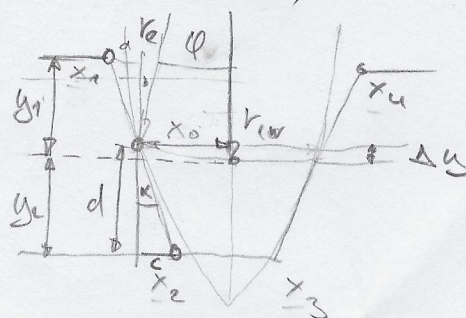 r_e φ
x_1 x_4
y_1
x_0 r_w
Δy
y_2 d α
c
x_2 x_3